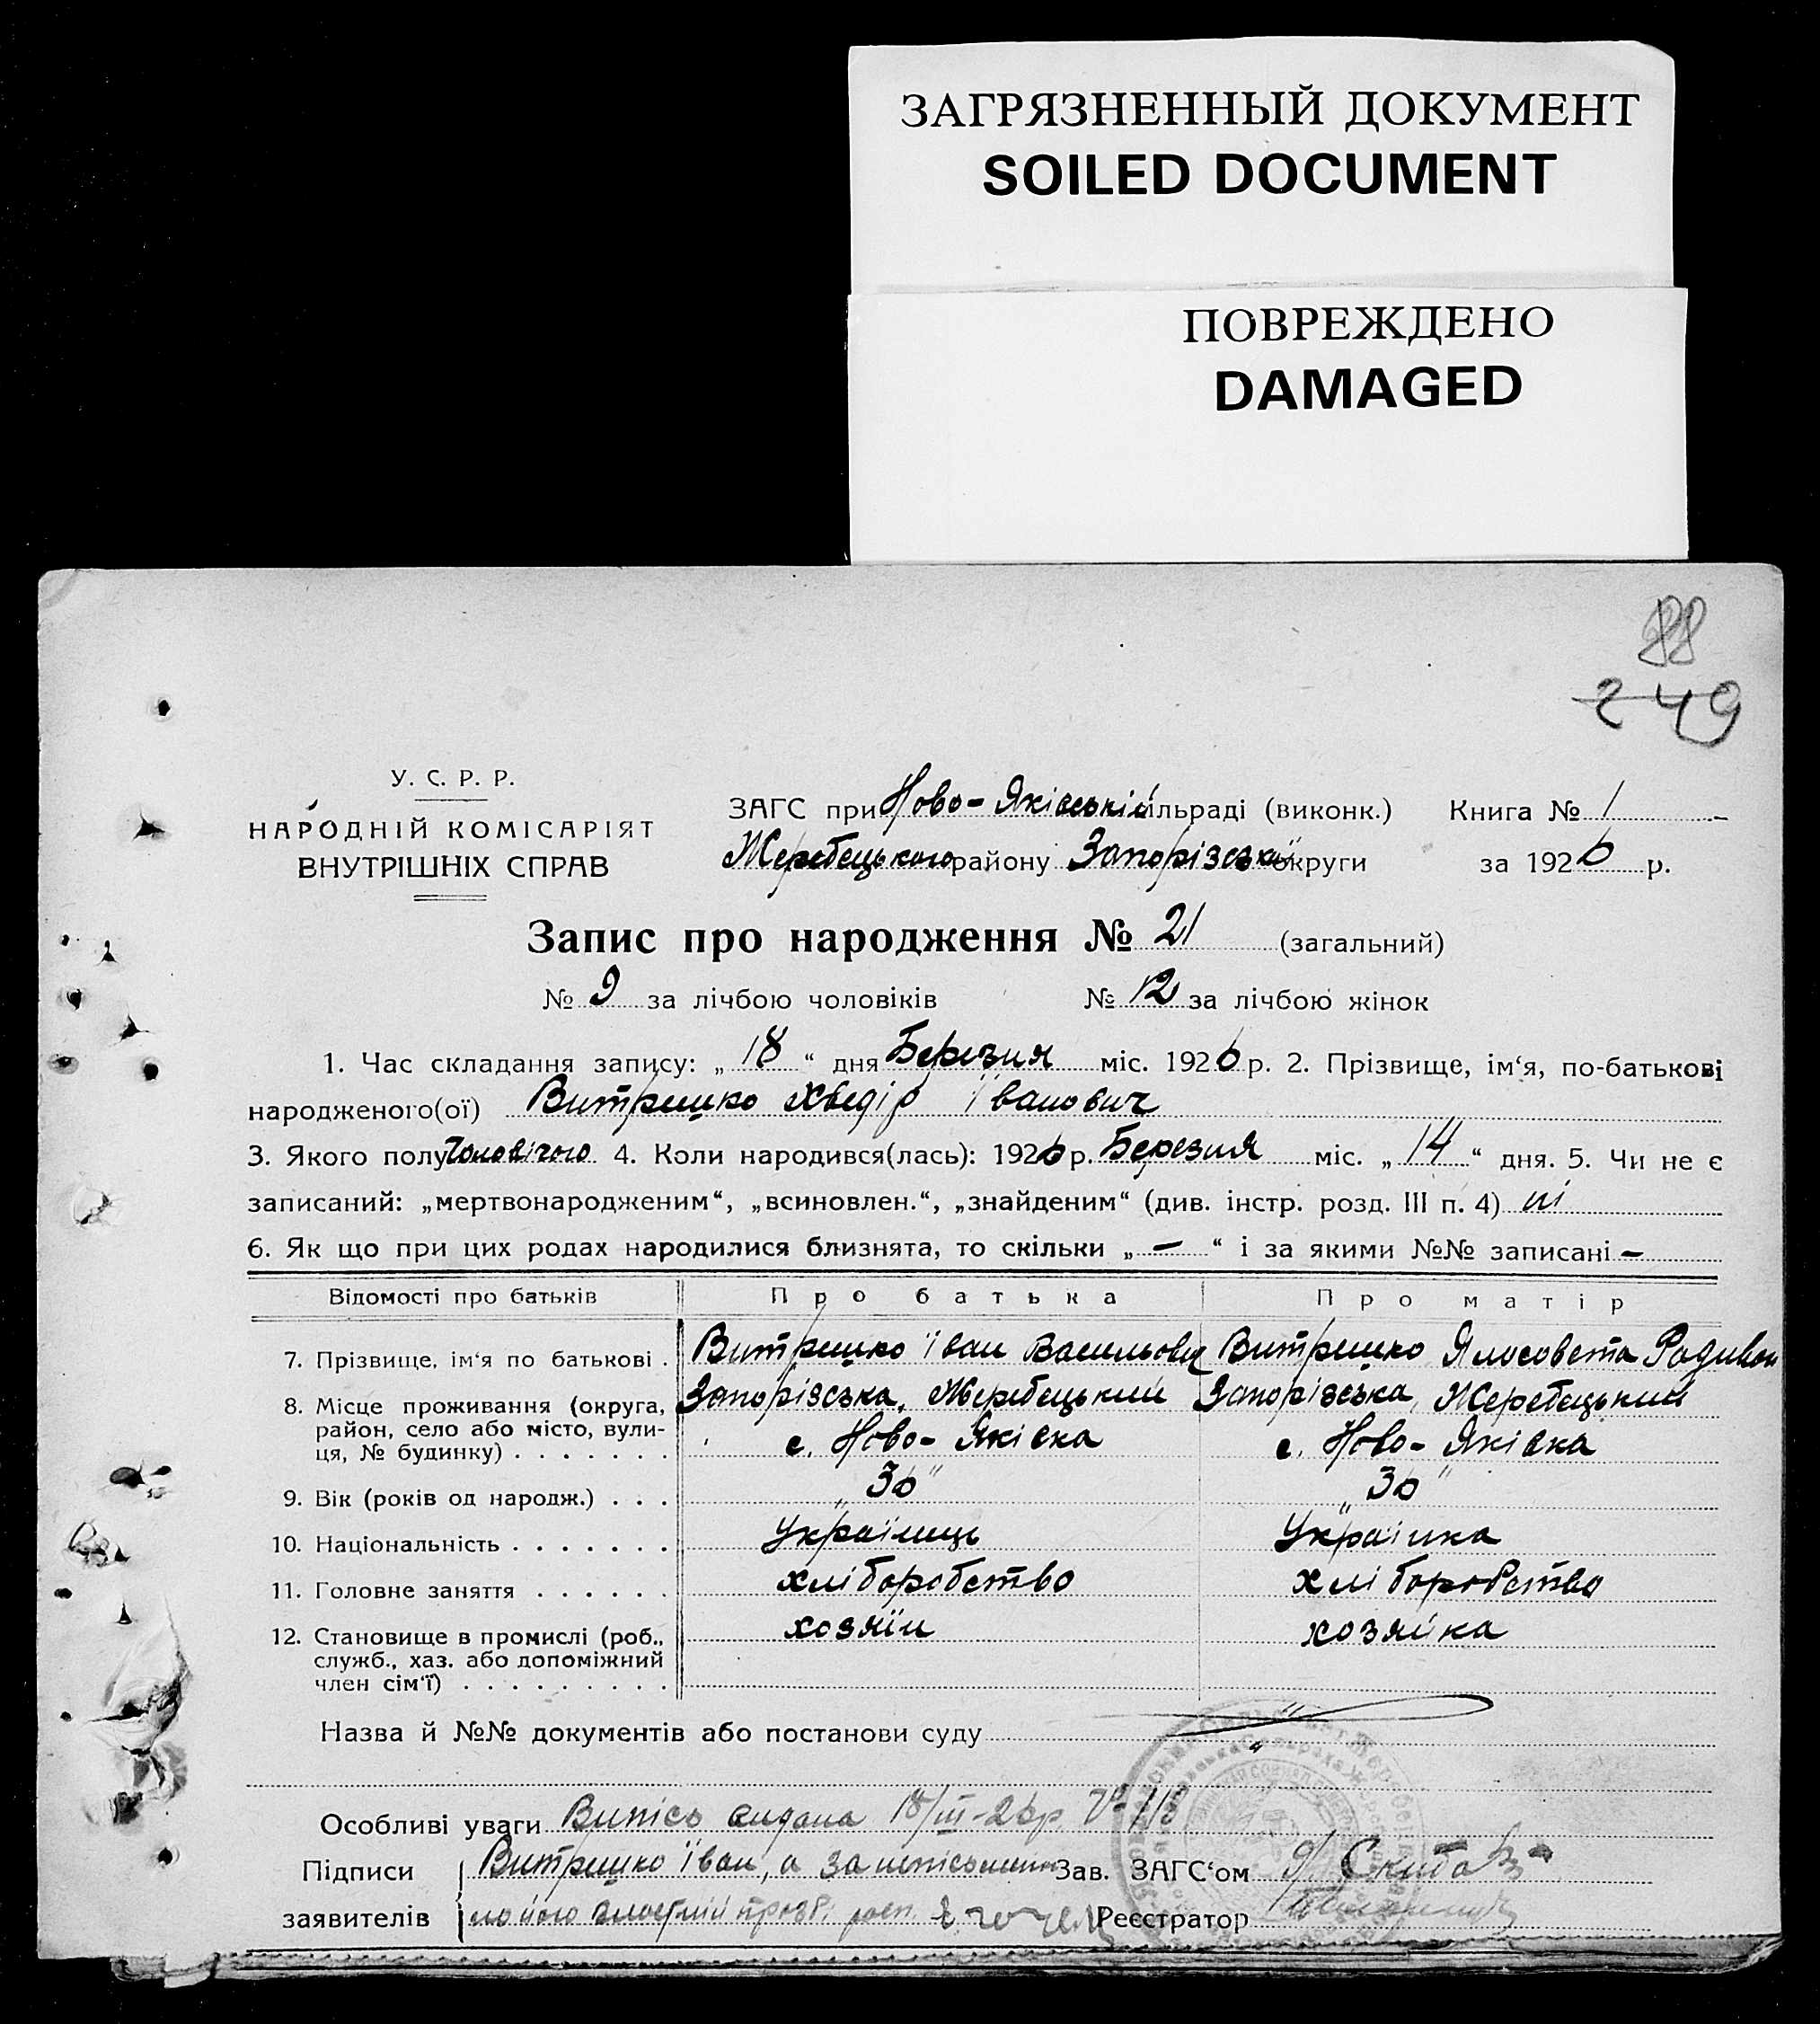 ЗАГРЯЗНЕННЫЙ ДОКУМЕНТ
SOILED DOCUMENT
ПОВРЕЖДЕНО
DAMAGED
88
249
У. С. Р. Р.
НАРОДНІЙ КОМІСАРІЯТ
ВНУТРІШНІХ СПРАВ
ЗАГС при Ново-Яківській сільраді (виконк.) Книга № 1
Жеребецького району Запорізської округи за 1926 р.
Запис про народження № 21 (загальний)
№ 9 за лічбою чоловіків № 12 за лічбою жінок
1. Час складання запису: „18“ дня Березня міс. 1926 р. 2. Прізвище, ім‘я, по-батькові
народженого(ої) Витришко Хведір Іванович
3. Якого полу Чоловічого 4. Коли народився(лась): 1926 р. Березня міс. „14“ дня. 5. Чи не є
записаний: „мертвонародженим“, „всиновлен.“, „знайденим“ (див. інстр. розд. III п. 4) ні
6. Як що при цих родах народилися близнята, то скільки „—“ і за якими №№ записані —
Відомості про батьків Про батька Про матір
7. Прізвище, ім‘я по батькові . Витришко Іван Васильович Витришко Ялисовета Родивон
8. Місце проживання (округа, Запорізська, Жеребецький Запорізська, Жеребецький
район, село або місто, вули-
ця, № будинку) . . . . . . . с. Ново-Яківка с. Ново-Яківка
9. Вік (років од народж.) . . . „36“ „36“
10. Національність . . . . . . . Українець Українка
11. Головне заняття . . . . . . хліборобство хліборобство
12. Становище в промислі (роб., хозяїн хозяїка
служб., хаз. або допоміжний
член сім‘ї) . . . . . . . . .
Назва й №№ документів або постанови суду
Особливі уваги Випись видана 18/III-26р № 113
Підписи Витришко Іван, а за Зав. ЗАГС‘ом Скиба
заявителів його Реєстратор